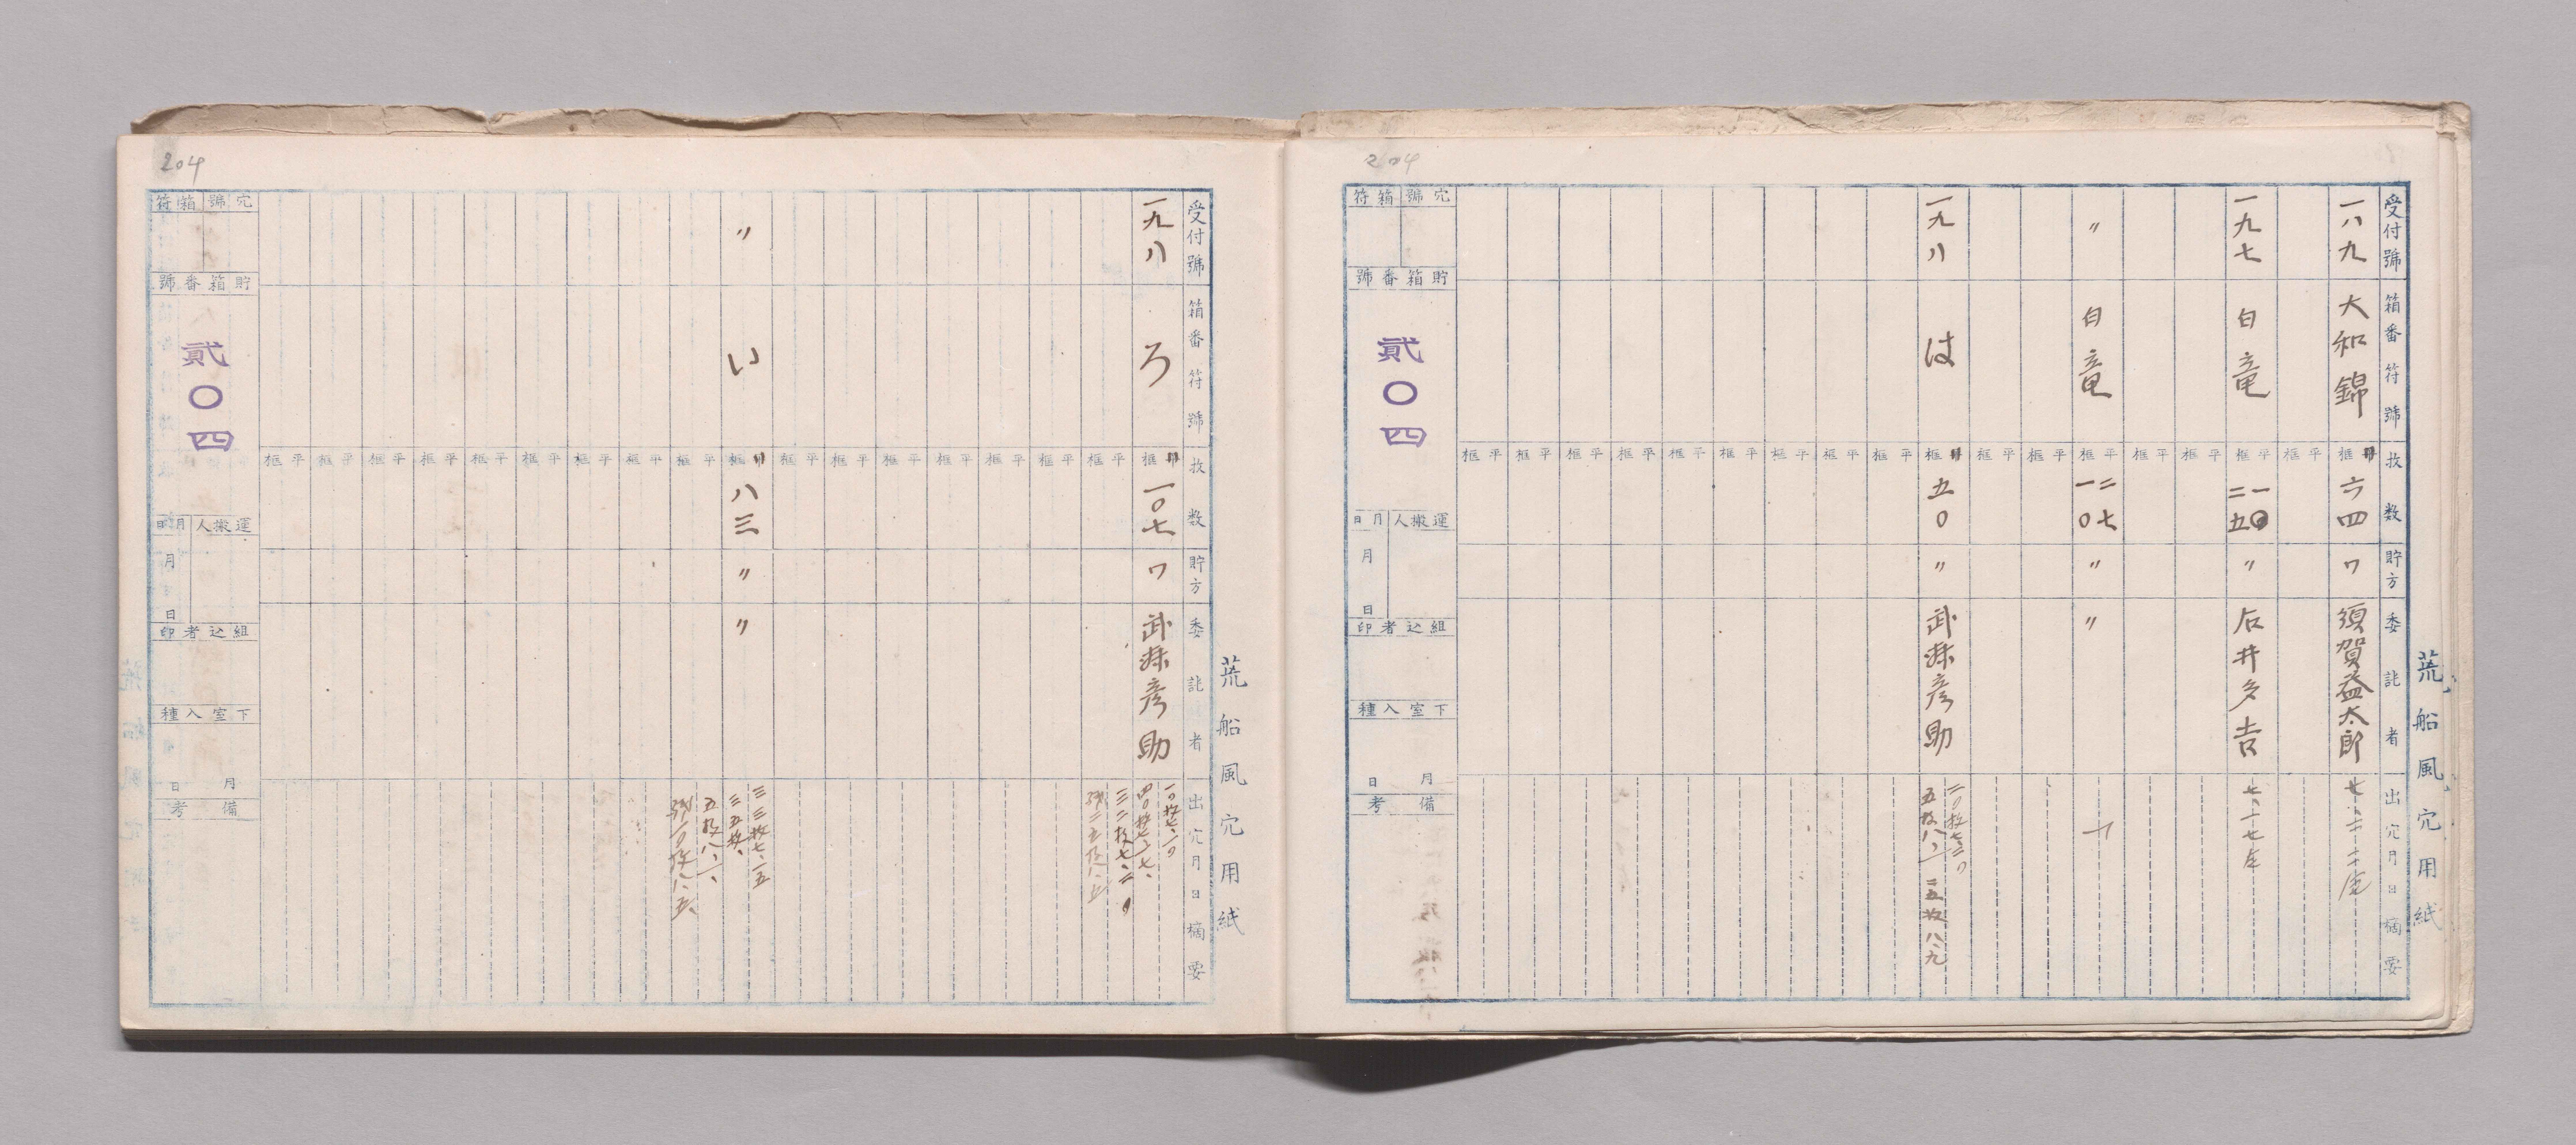 荒船風穴用紙
204
受付號
箱番符號
枚数
貯方
委託者
出穴月日摘要
一八九
大和錦
框
六四
ワ
須賀益太郎
一九七
白竜
框平
一〇
二五
〃
石井多吉
〃
白竜
框平
二七
一〇
〃
〃
一九八
は
框
五〇
〃
武井彦助
二〇枚七、三〇
五枚八、一、二五枚八、九
穴號箱符
貯箱番號
貳〇四
運搬人
月日
月
日
組込者印
下室入種
月
日
備考
荒船風穴用紙
204
受付號
箱番符號
枚数
貯方
委託者
出穴月日摘要
一九八
ろ
框
一〇七
ワ
武井彦助
一〇枚七、一〇
四〇枚七、七、
三二枚七、二〇
残二五枚八、五
〃
い
框
八三
〃
〃
三三枚七、一五
三五枚、
五枚八、一、
残一〇枚八、五、
穴號箱符
貯箱番號
貳〇四
運搬人
月日
月
日
組込者印
下室入種
月
日
備考